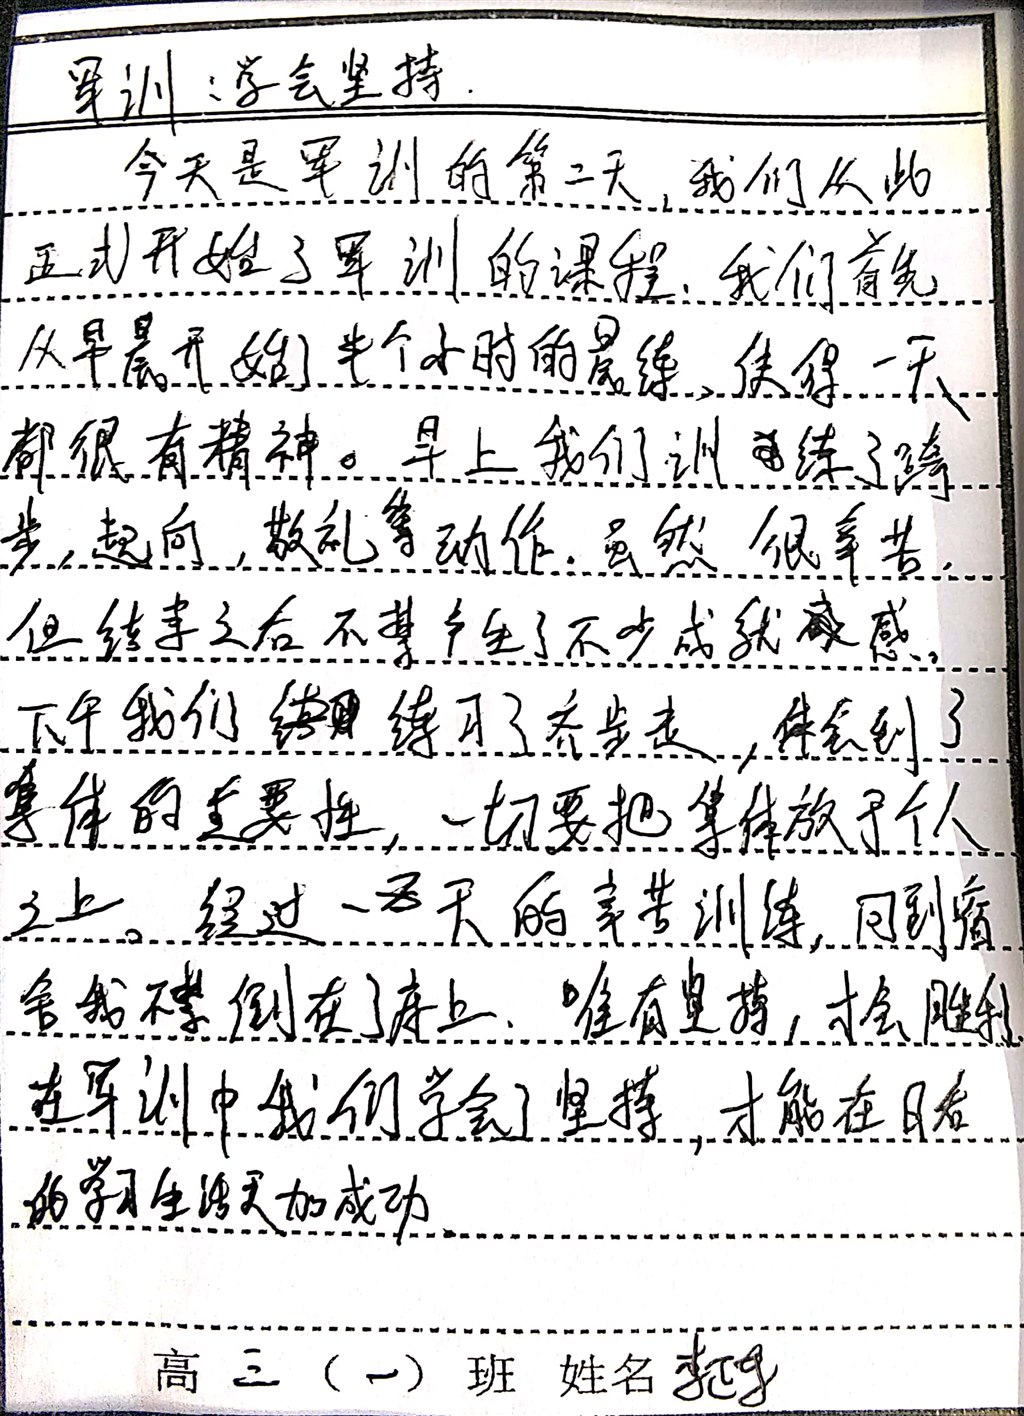 军训:学会坚持.
今天是军训的第二天,我们从此
正式开始了军训的课程.我们首先
从早晨开始了半个小时的晨练、使得一天
都很有精神。早上我们训练了跨
步,起向,敬礼等动作.虽然很辛苦.
但结束之后不禁产生了不少成就感。
下午我们练习了齐步走,体会到了
集体的重要性,一切要把集体放于个人
之上。经过一天的辛苦训练,回到宿
舍我不禁倒在了床上.唯有坚持,才会胜利.
在军训中我们学会了坚持,才能在日后
的学习生活更加成功.
高三(一)班 姓名